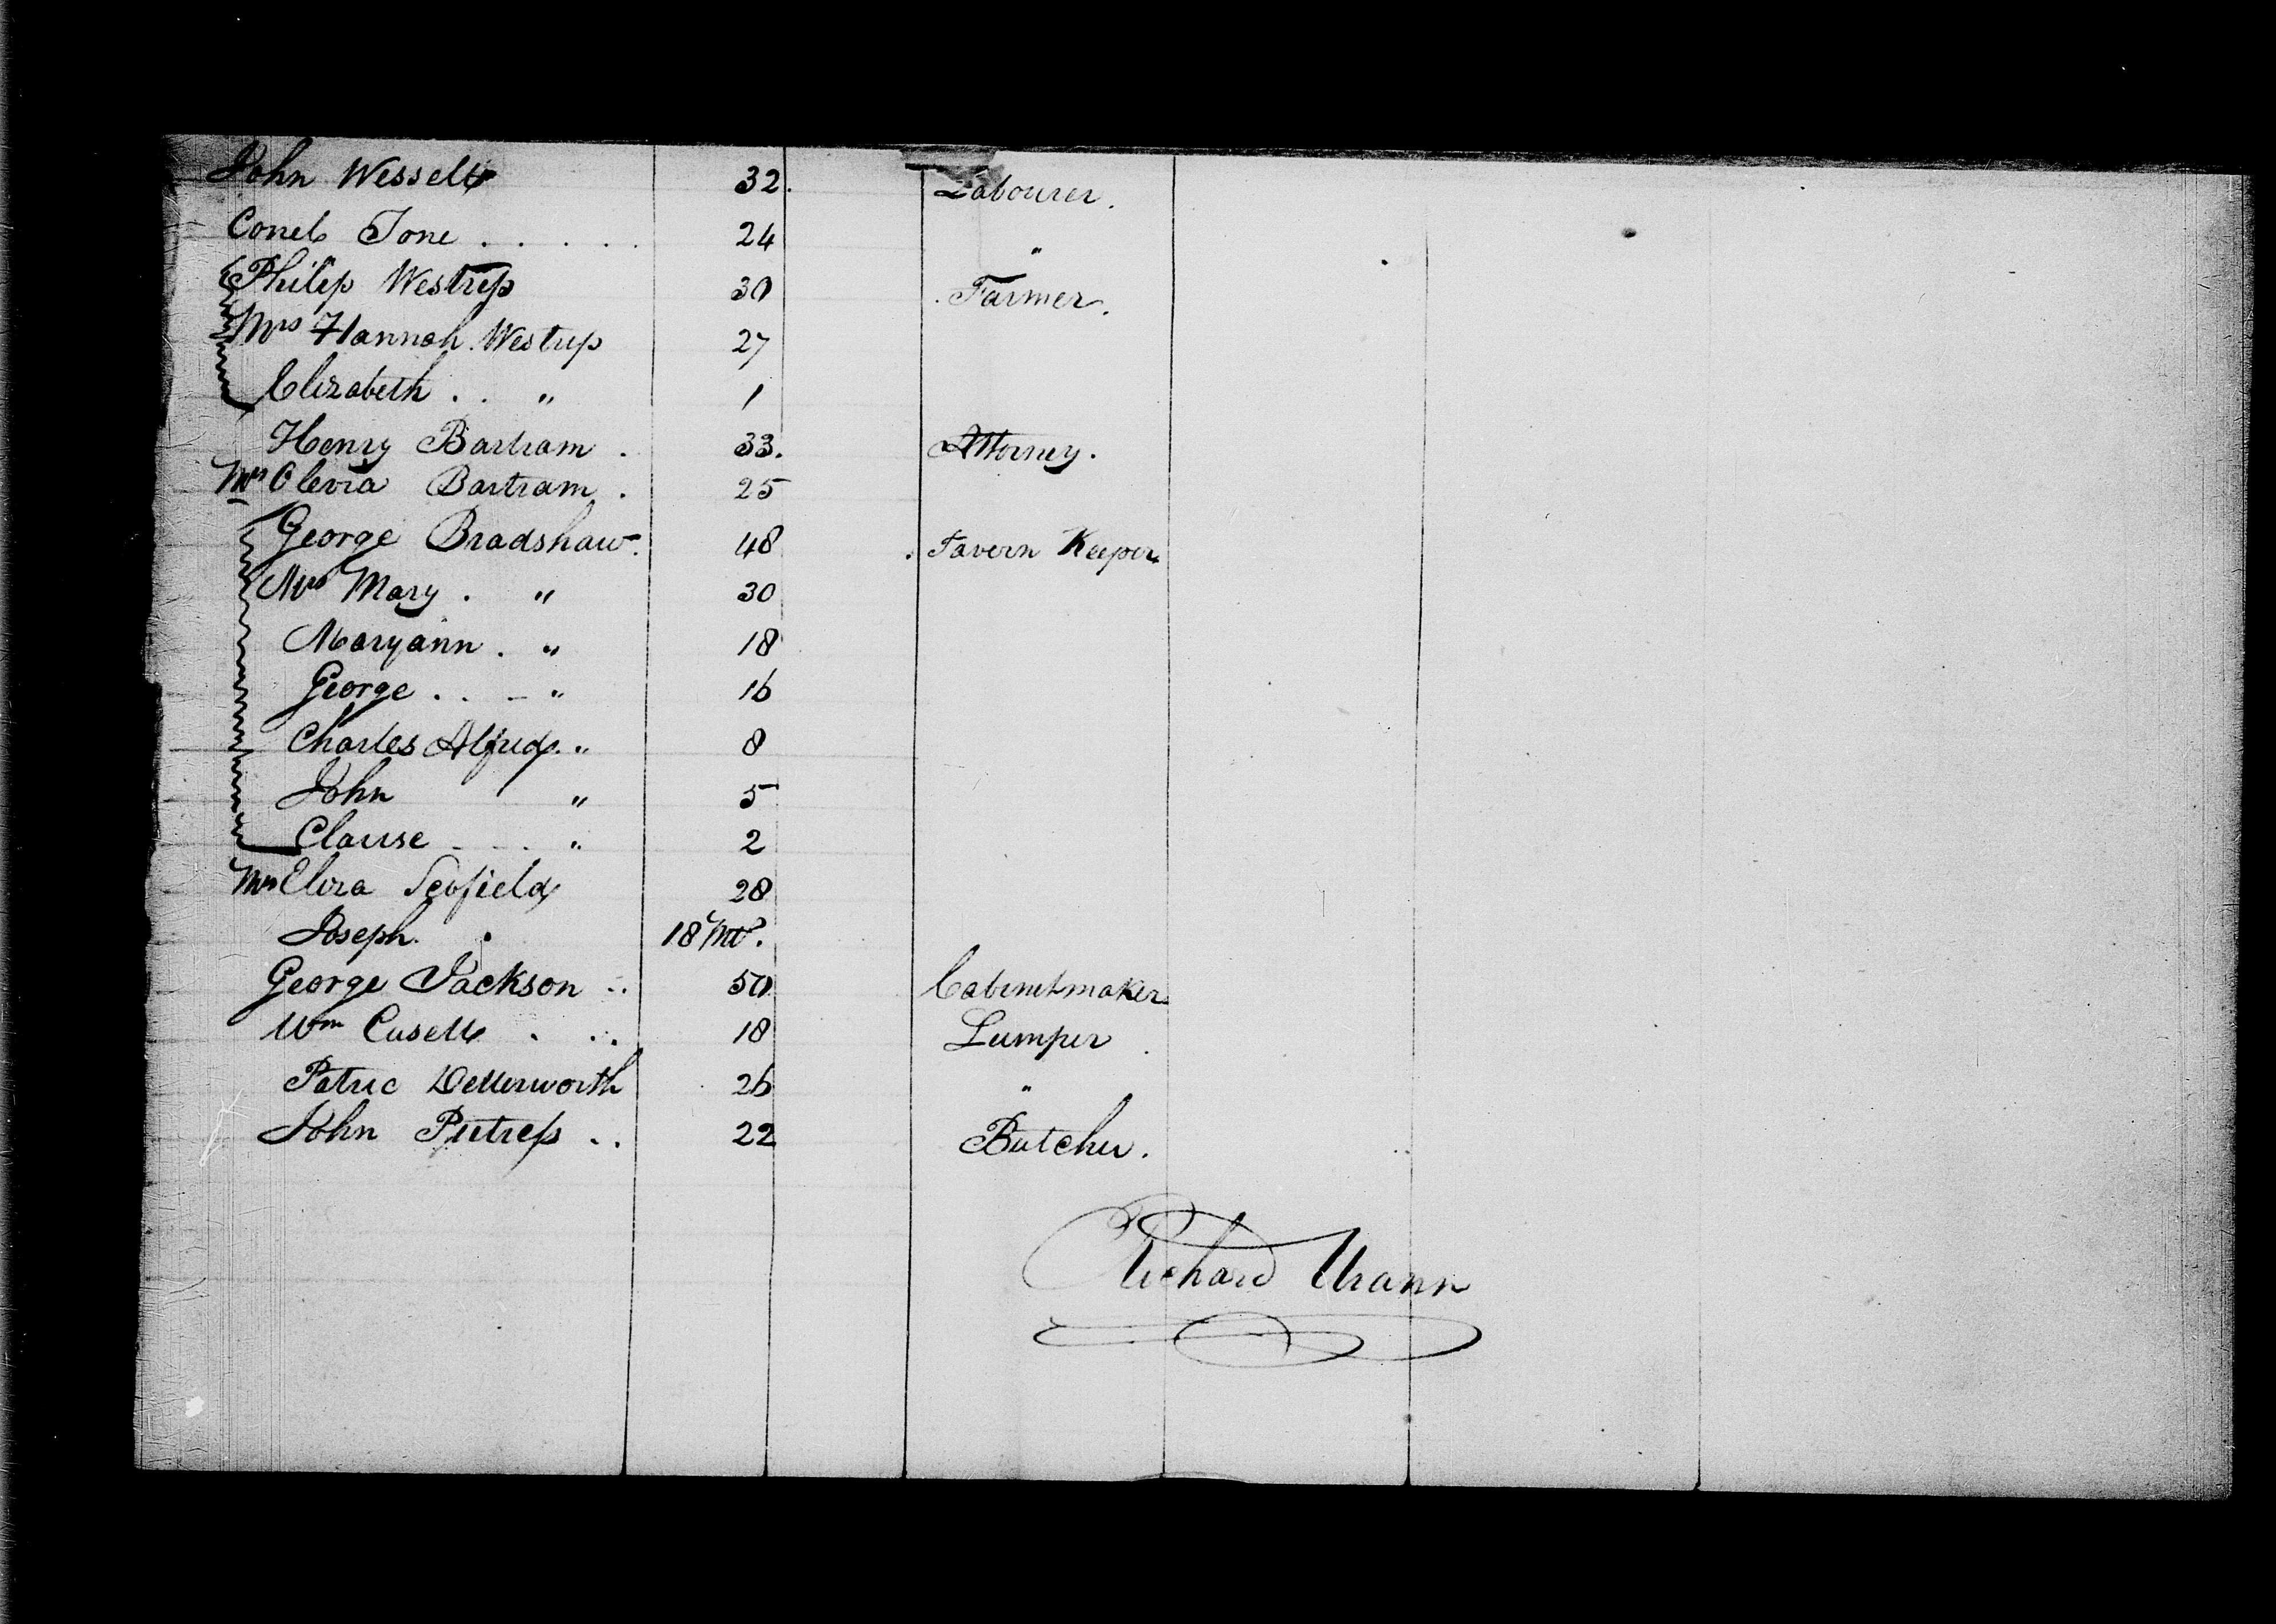 John Wessell 32. Labourer.
Tone . . . . . 24 "
Philip Westrup 30 Farmer.
Mrs Hannah Westrup 27
Elizabeth . . " 1
Henry Bartram . 33. Attorney.
Mrs Olevia Bartram . 25
George Bradshaw. 48 Tavern Keeper
Mrs Mary . " 30
Maryann . " 18
George . . - " 16
Charles Alfred. " 8
John " 5
Clause - . - . " 2
Mrs Eliza Scofield 28
Joseph. . 18 Mts.
George Jackson .. 50 Cabinetmaker
Wm Cusell . . . 18 Lumper
Patric Dellerworth 26 "
John .. 22 Butcher.
Richard Urann